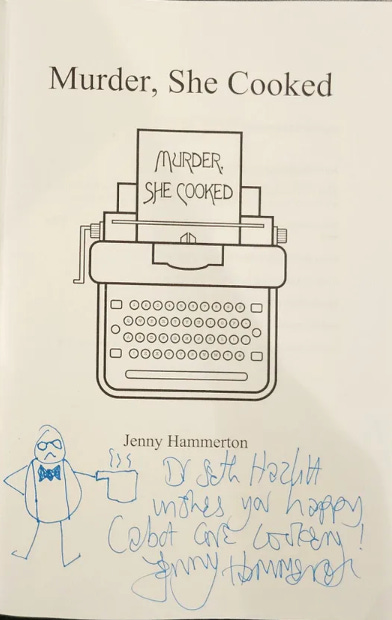 Murder, She Cooked
MURDER,
SHE COOKED
Jenny Hammerton
Dr Seth Hazlitt
wishes you happy
Cabot Cove cookery!
Jenny Hammerton